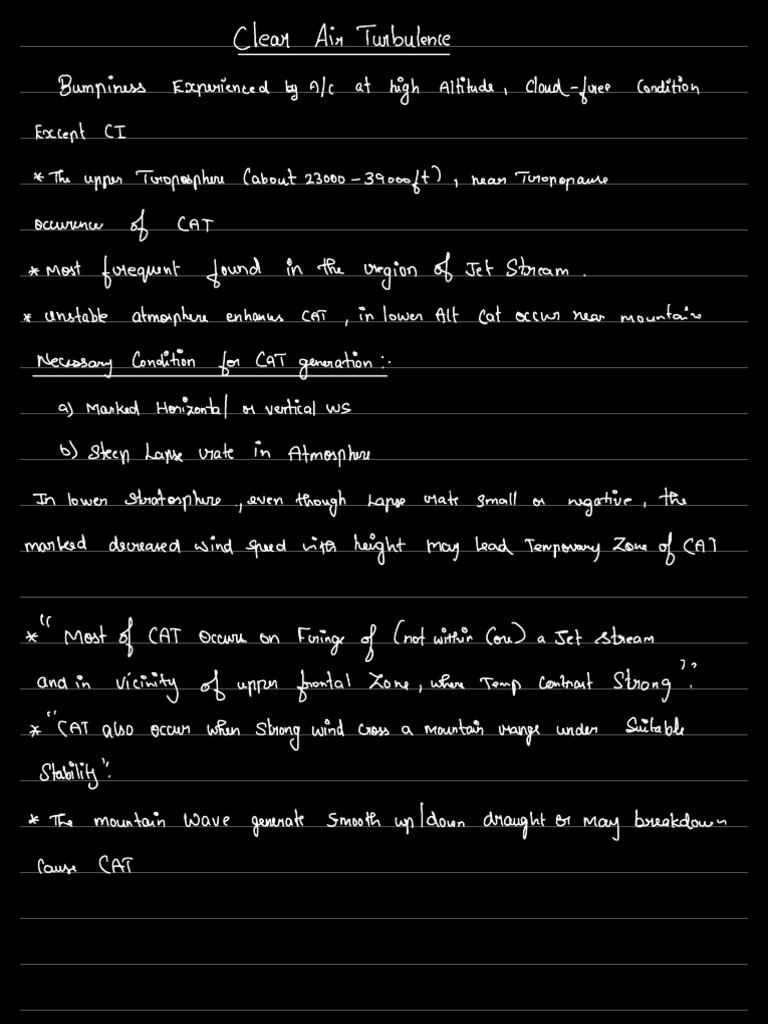 Clear Air Turbulence
Bumpiness Experienced by A/c at high Altitude, Cloud-free Condition
Except CI
* The upper Troposphere (about 23000-39000ft), near Tropopause
occurence of CAT
* Most frequent found in the region of Jet Stream.
* unstable atmosphere enhances CAT, in lower Alt Cat occur near mountain
Necessary Condition for CAT generation:-
a) Marked Horizontal or vertical WS
b) Steep Lapse rate in Atmosphere
In lower stratosphere, even though Lapse rate small or negative, the
marked decreased wind speed with height may lead Temporary Zone of CAT
* "Most of CAT Occurs on Fringe of (not within Core) a Jet stream
and in vicinity of upper frontal Zone, where Temp Contrast Strong".
* "CAT also occur when Strong wind cross a mountain range under Suitable
Stability".
* The mountain Wave generate Smooth up/down draught or may breakdown
Cause CAT